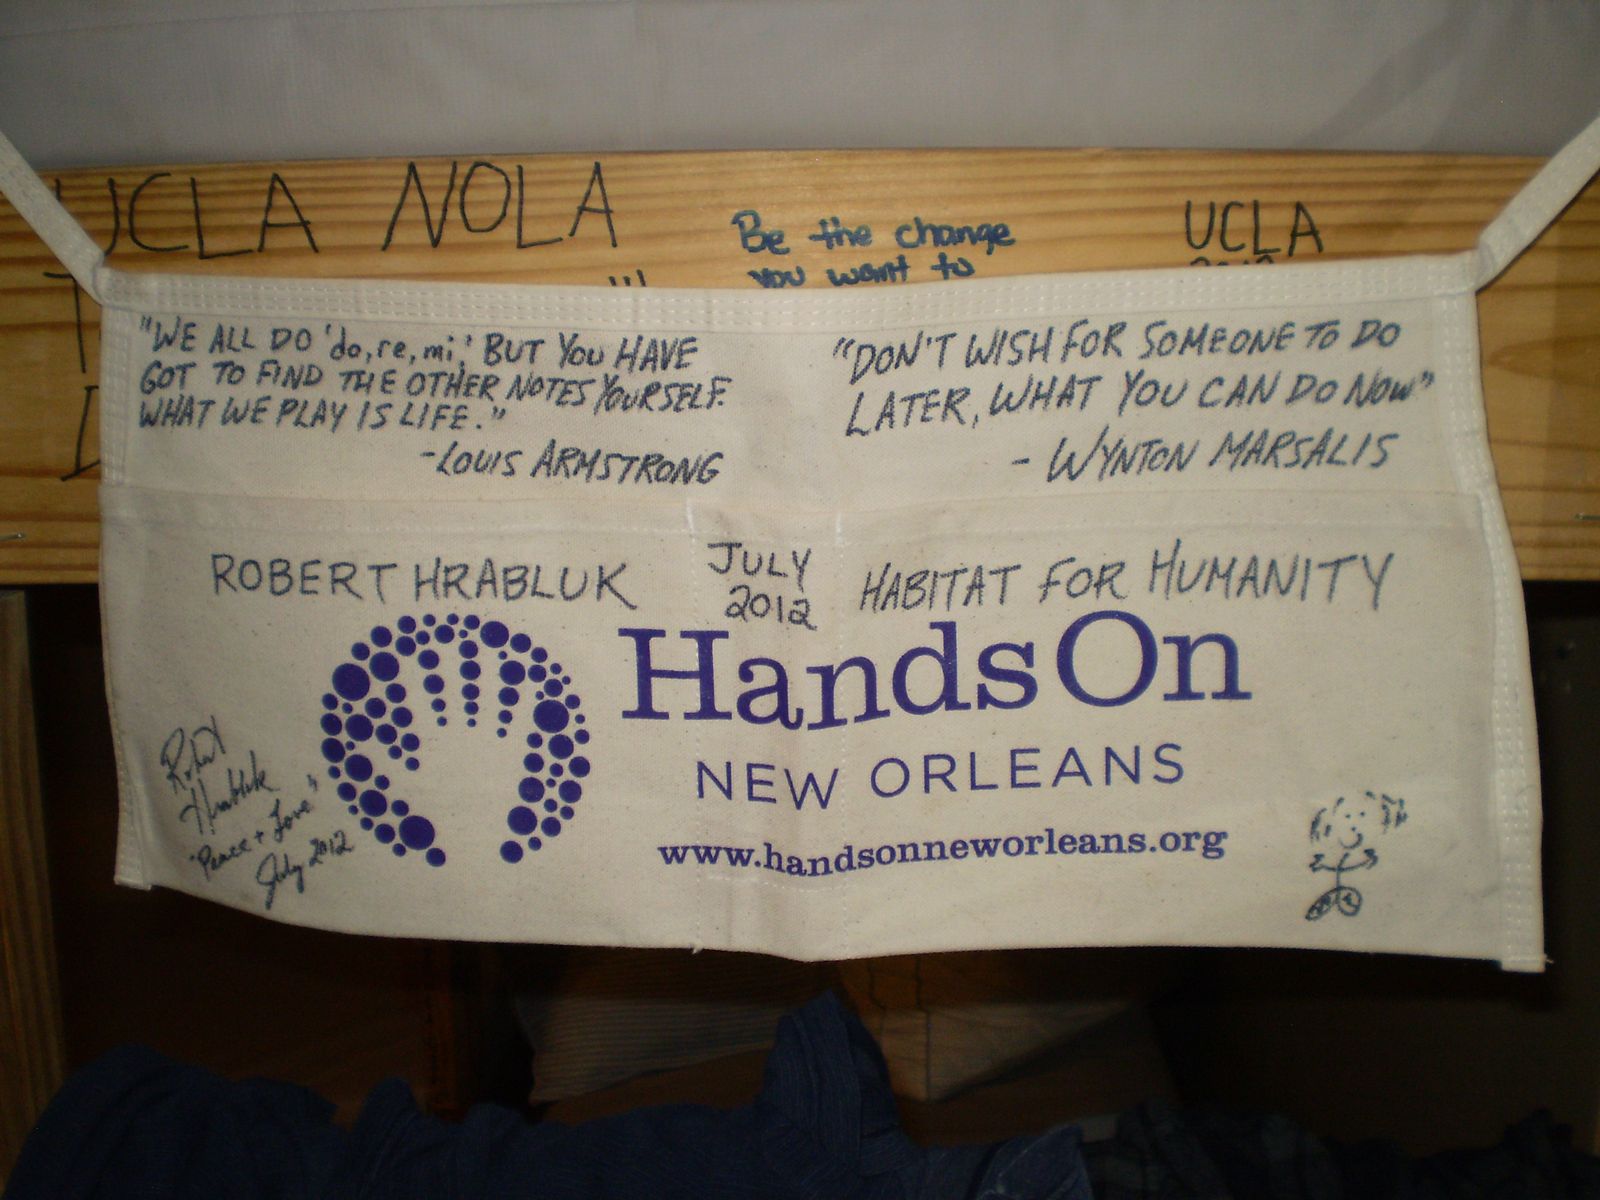 UCLA NOLA
Be the change
you want to
UCLA
2012
"WE ALL DO 'do, re, mi,' BUT YOU HAVE
GOT TO FIND THE OTHER NOTES YOURSELF.
WHAT WE PLAY IS LIFE."
-LOUIS ARMSTRONG
"DON'T WISH FOR SOMEONE TO DO
LATER, WHAT YOU CAN DO NOW"
- WYNTON MARSALIS
ROBERT HRABLUK
JULY
2012
HABITAT FOR HUMANITY
HandsOn
NEW ORLEANS
www.handsonneworleans.org
Robert
Hrabluk
"Peace + Love"
July 2012